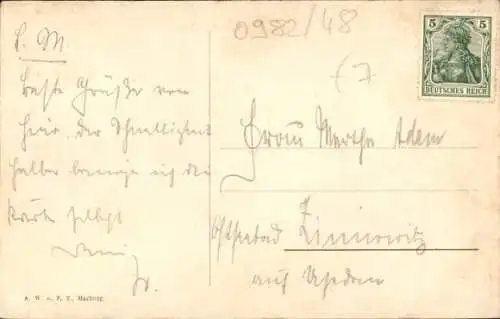 0982/48
5 5
DEUTSCHES REICH
L. M.
Beste Grüße von
hier, der Schnelligkeit
halber bringe ich die
Karte selbst
Frau Martha Adam
Ostseebad Zinnowitz
auf Usedom
A. W. u. F. Z., Hamburg.